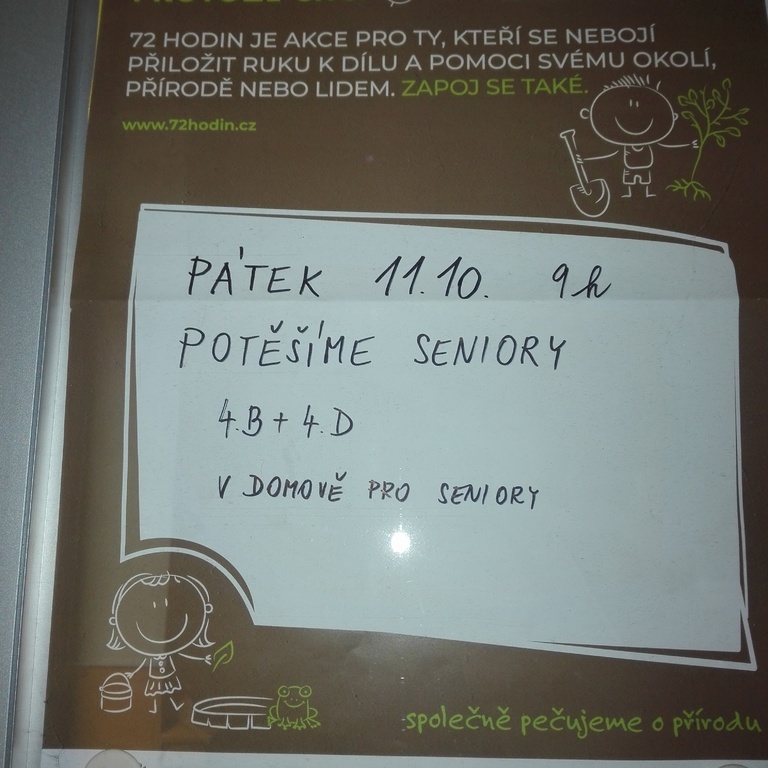 72 HODIN JE AKCE PRO TY, KTEŘÍ SE NEBOJÍ
PŘILOŽIT RUKU K DÍLU A POMOCI SVÉMU OKOLÍ,
PŘÍRODĚ NEBO LIDEM. ZAPOJ SE TAKÉ.
www.72hodin.cz
PÁTEK 11.10. 9h
POTĚŠÍME SENIORY
4.B + 4.D
V DOMOVĚ PRO SENIORY
společně pečujeme o přírodu